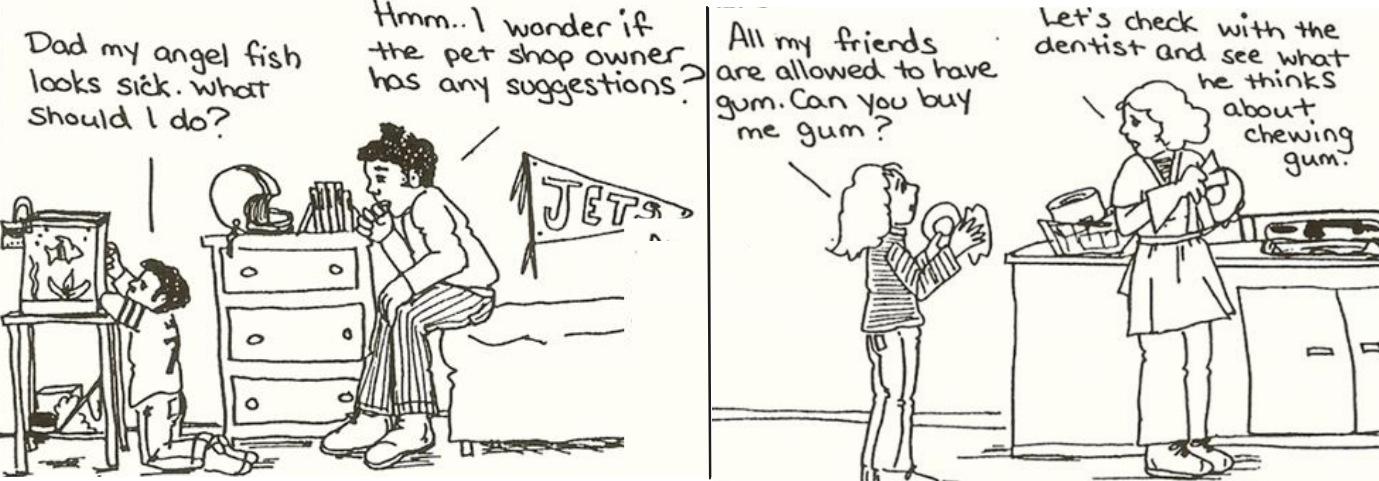 Dad my angel fish
looks sick. What
should I do?
Hmm.. I wonder if
the pet shop owner
has any suggestions?
JETS
All my friends
are allowed to have
gum. Can you buy
me gum?
Let's check with the
dentist and see what
he thinks
about
chewing
gum.